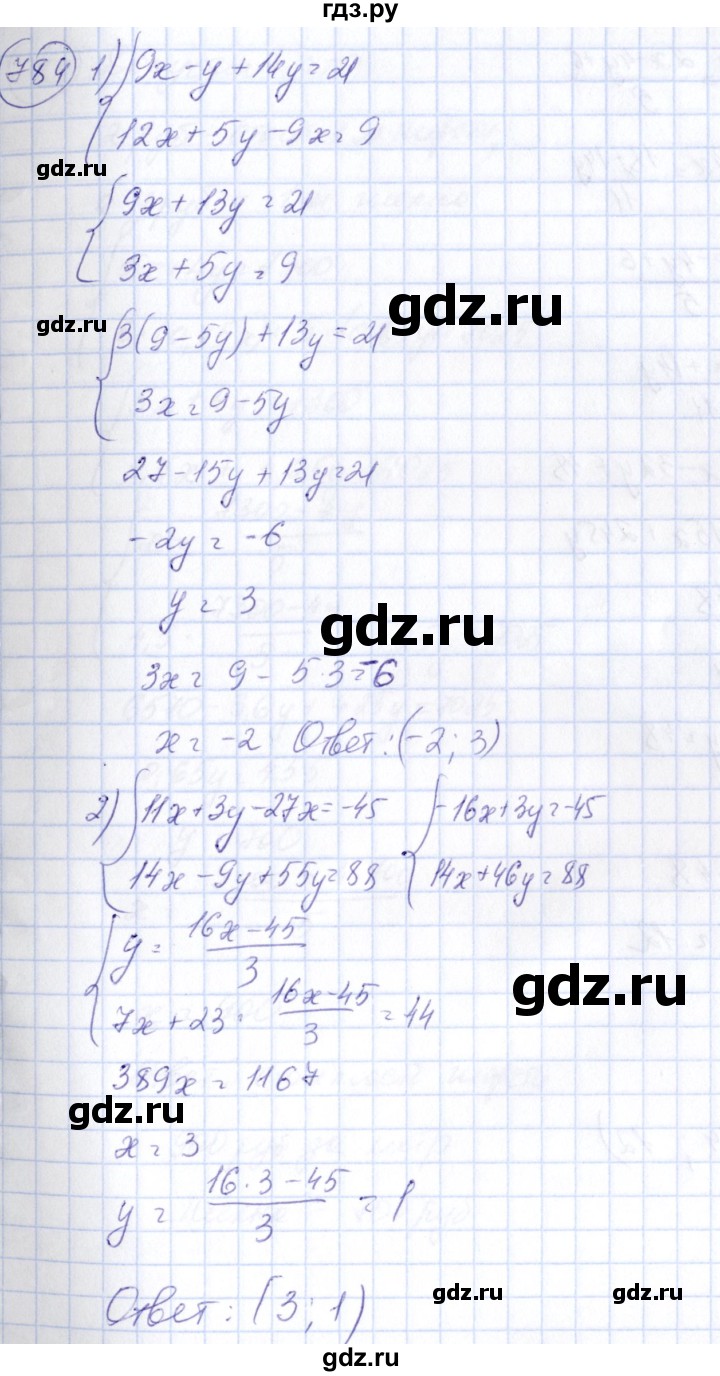 гдз.ру
784 1) { 9x - y + 14y = 21
12x + 5y - 9x = 9
gdz.ru
{ 9x + 13y = 21
3x + 5y = 9
gdz.ru
gdz.ru
{ 3(9 - 5y) + 13y = 21
3x = 9 - 5y
27 - 15y + 13y = 21
-2y = -6
y = 3
gdz.ru
3x = 9 - 5·3 = -6
x = -2 Ответ: (-2; 3)
2) { 11x + 3y - 27x = -45 { -16x + 3y = -45
14x - 9y + 55y = 88 14x + 46y = 88
{ y = (16x - 45)/3
gdz.ru
7x + 23 · (16x - 45)/3 = 44
389x = 1167
gdz.ru
x = 3
y = (16·3 - 45)/3 = 1
gdz.ru gdz.ru
Ответ: (3; 1)
gdz.ru